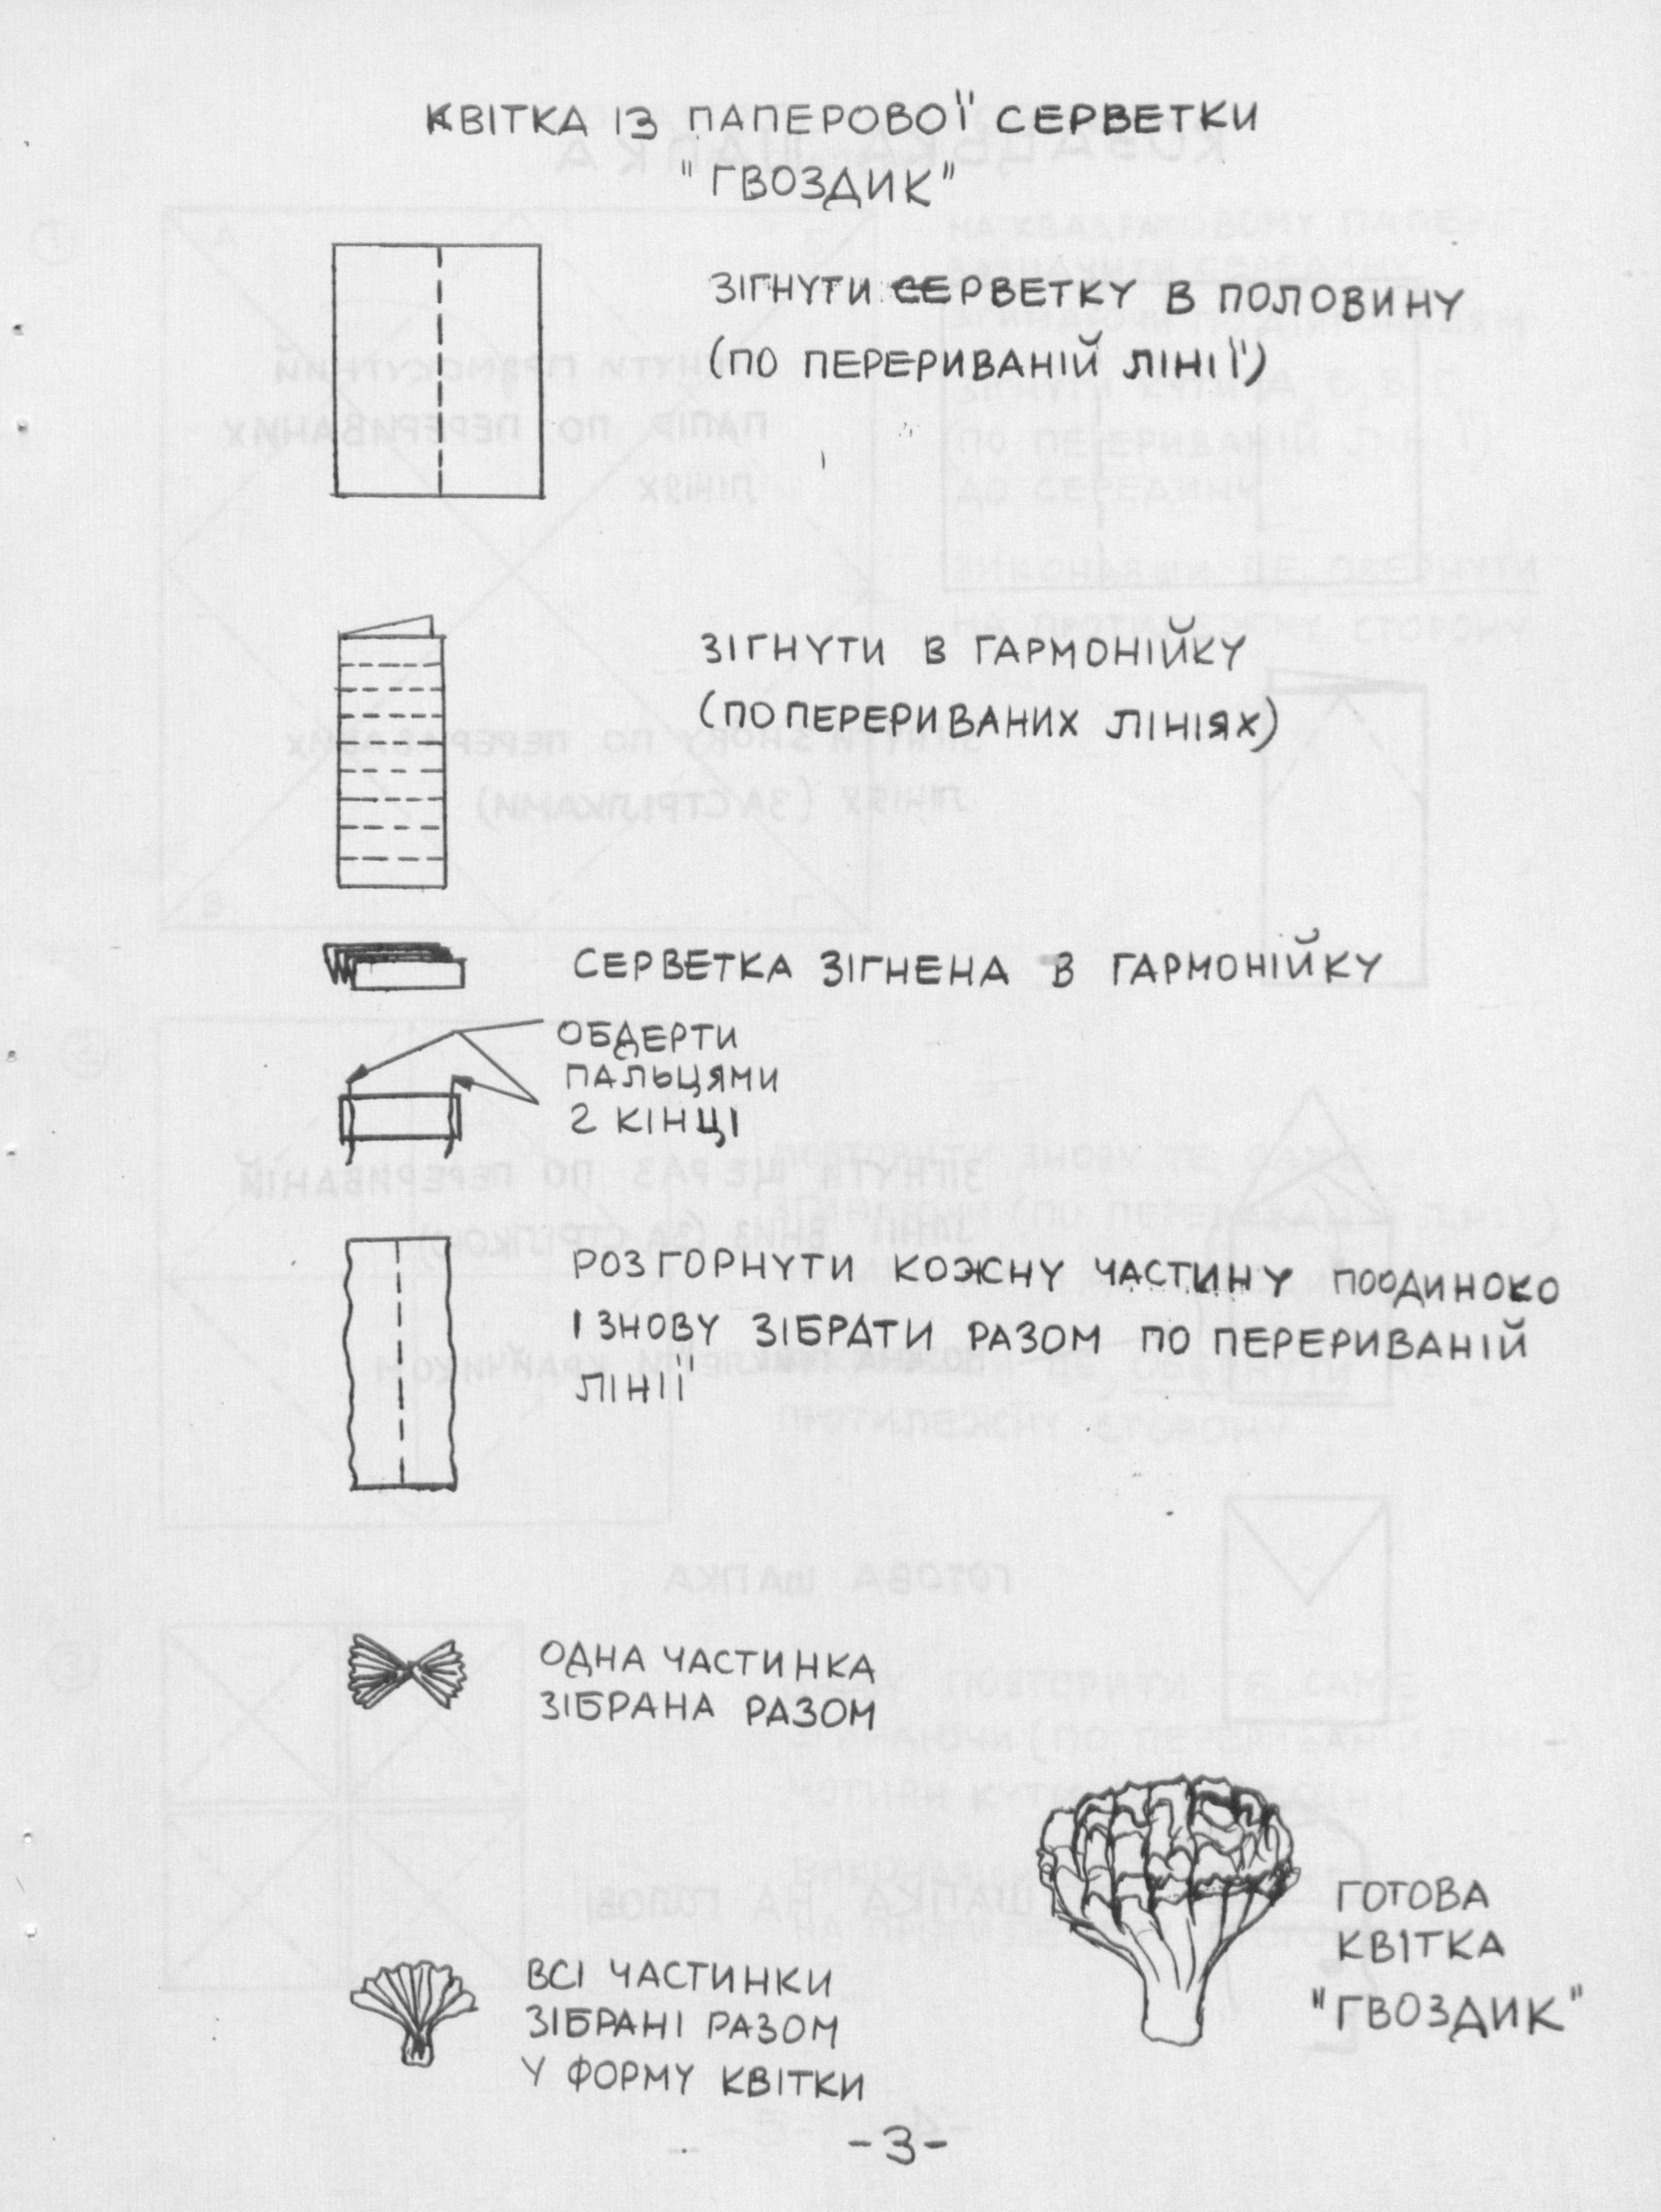 КВІТКА ІЗ ПАПЕРОВОЇ СЕРВЕТКИ
"ГВОЗДИК"
ЗІГНУТИ СЕРВЕТКУ В ПОЛОВИНУ
(ПО ПЕРЕРИВАНІЙ ЛІНІЇ)
ЗІГНУТИ В ГАРМОНІЙКУ
(ПО ПЕРЕРИВАНИХ ЛІНІЯХ)
СЕРВЕТКА ЗІГНЕНА В ГАРМОНІЙКУ
ОБДЕРТИ
ПАЛЬЦЯМИ
2 КІНЦІ
РОЗГОРНУТИ КОЖНУ ЧАСТИНУ ПООДИНОКО
І ЗНОВУ ЗІБРАТИ РАЗОМ ПО ПЕРЕРИВАНІЙ
ЛІНІЇ
ОДНА ЧАСТИНКА
ЗІБРАНА РАЗОМ
ГОТОВА
КВІТКА
"ГВОЗДИК"
ВСІ ЧАСТИНКИ
ЗІБРАНІ РАЗОМ
У ФОРМУ КВІТКИ
-3-